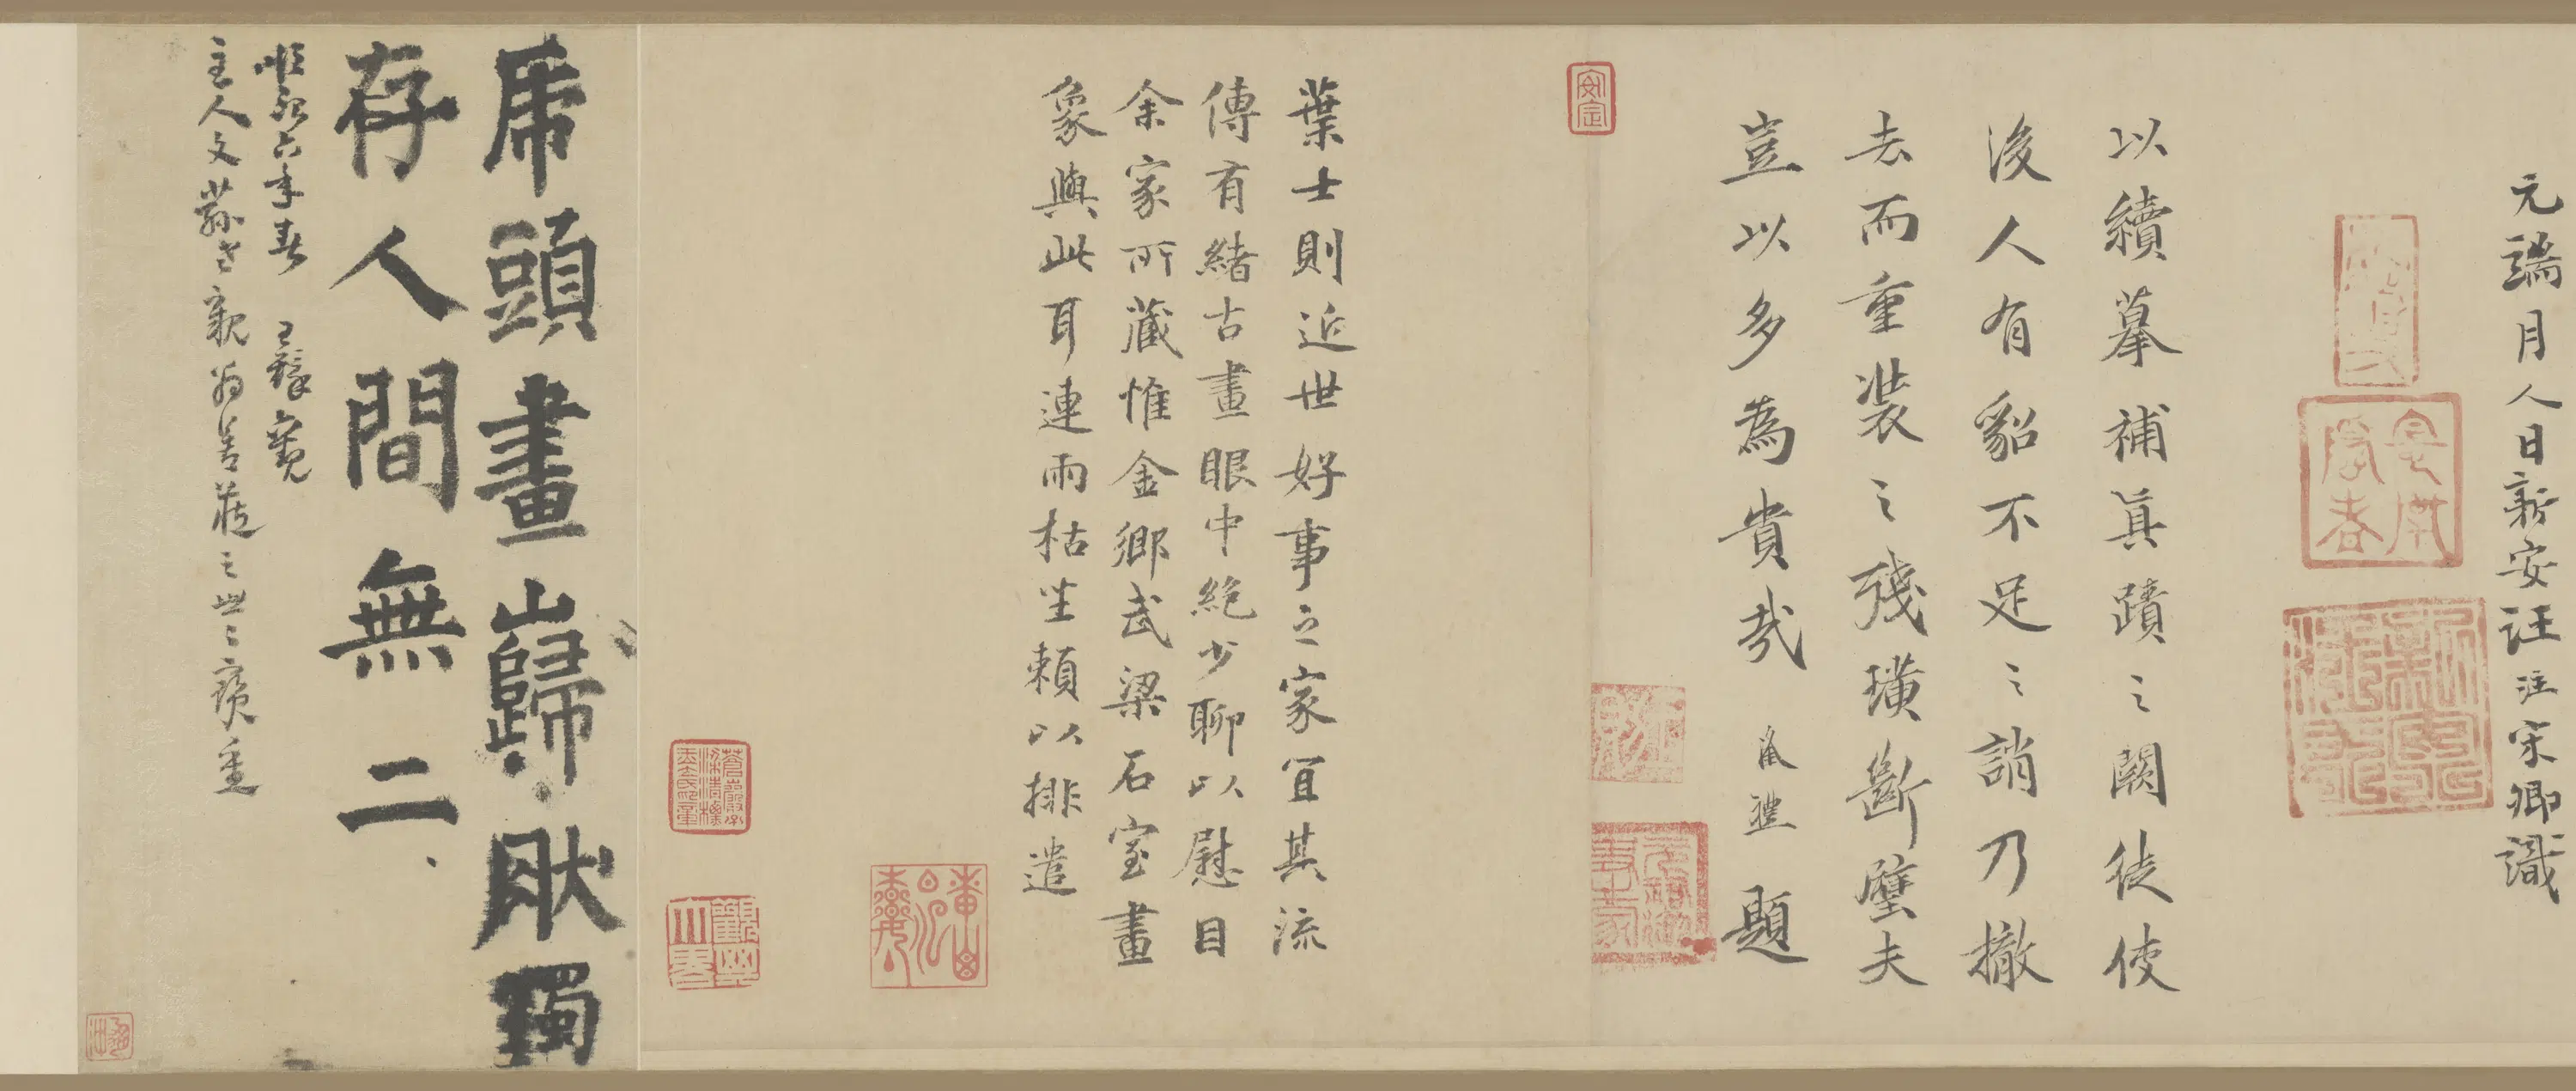 元端月人日新安汪注宋卿識
以續摹補眞蹟之闕徒使
後人有貂不足之誚乃撤
去而重裝之殘璜斷壁夫
豈以多為貴哉 題
葉士則近世好事之家冝其流
傳有緒古畫眼中絶少聊以慰目
余家所藏惟金鄉武梁石室畫
象與此耳連雨枯坐賴以排遣
虎頭畫歸耿獨
存人間無二
順和六年春 王鐸寬
主人文蓀老親翁善藏之世世寶重
安定